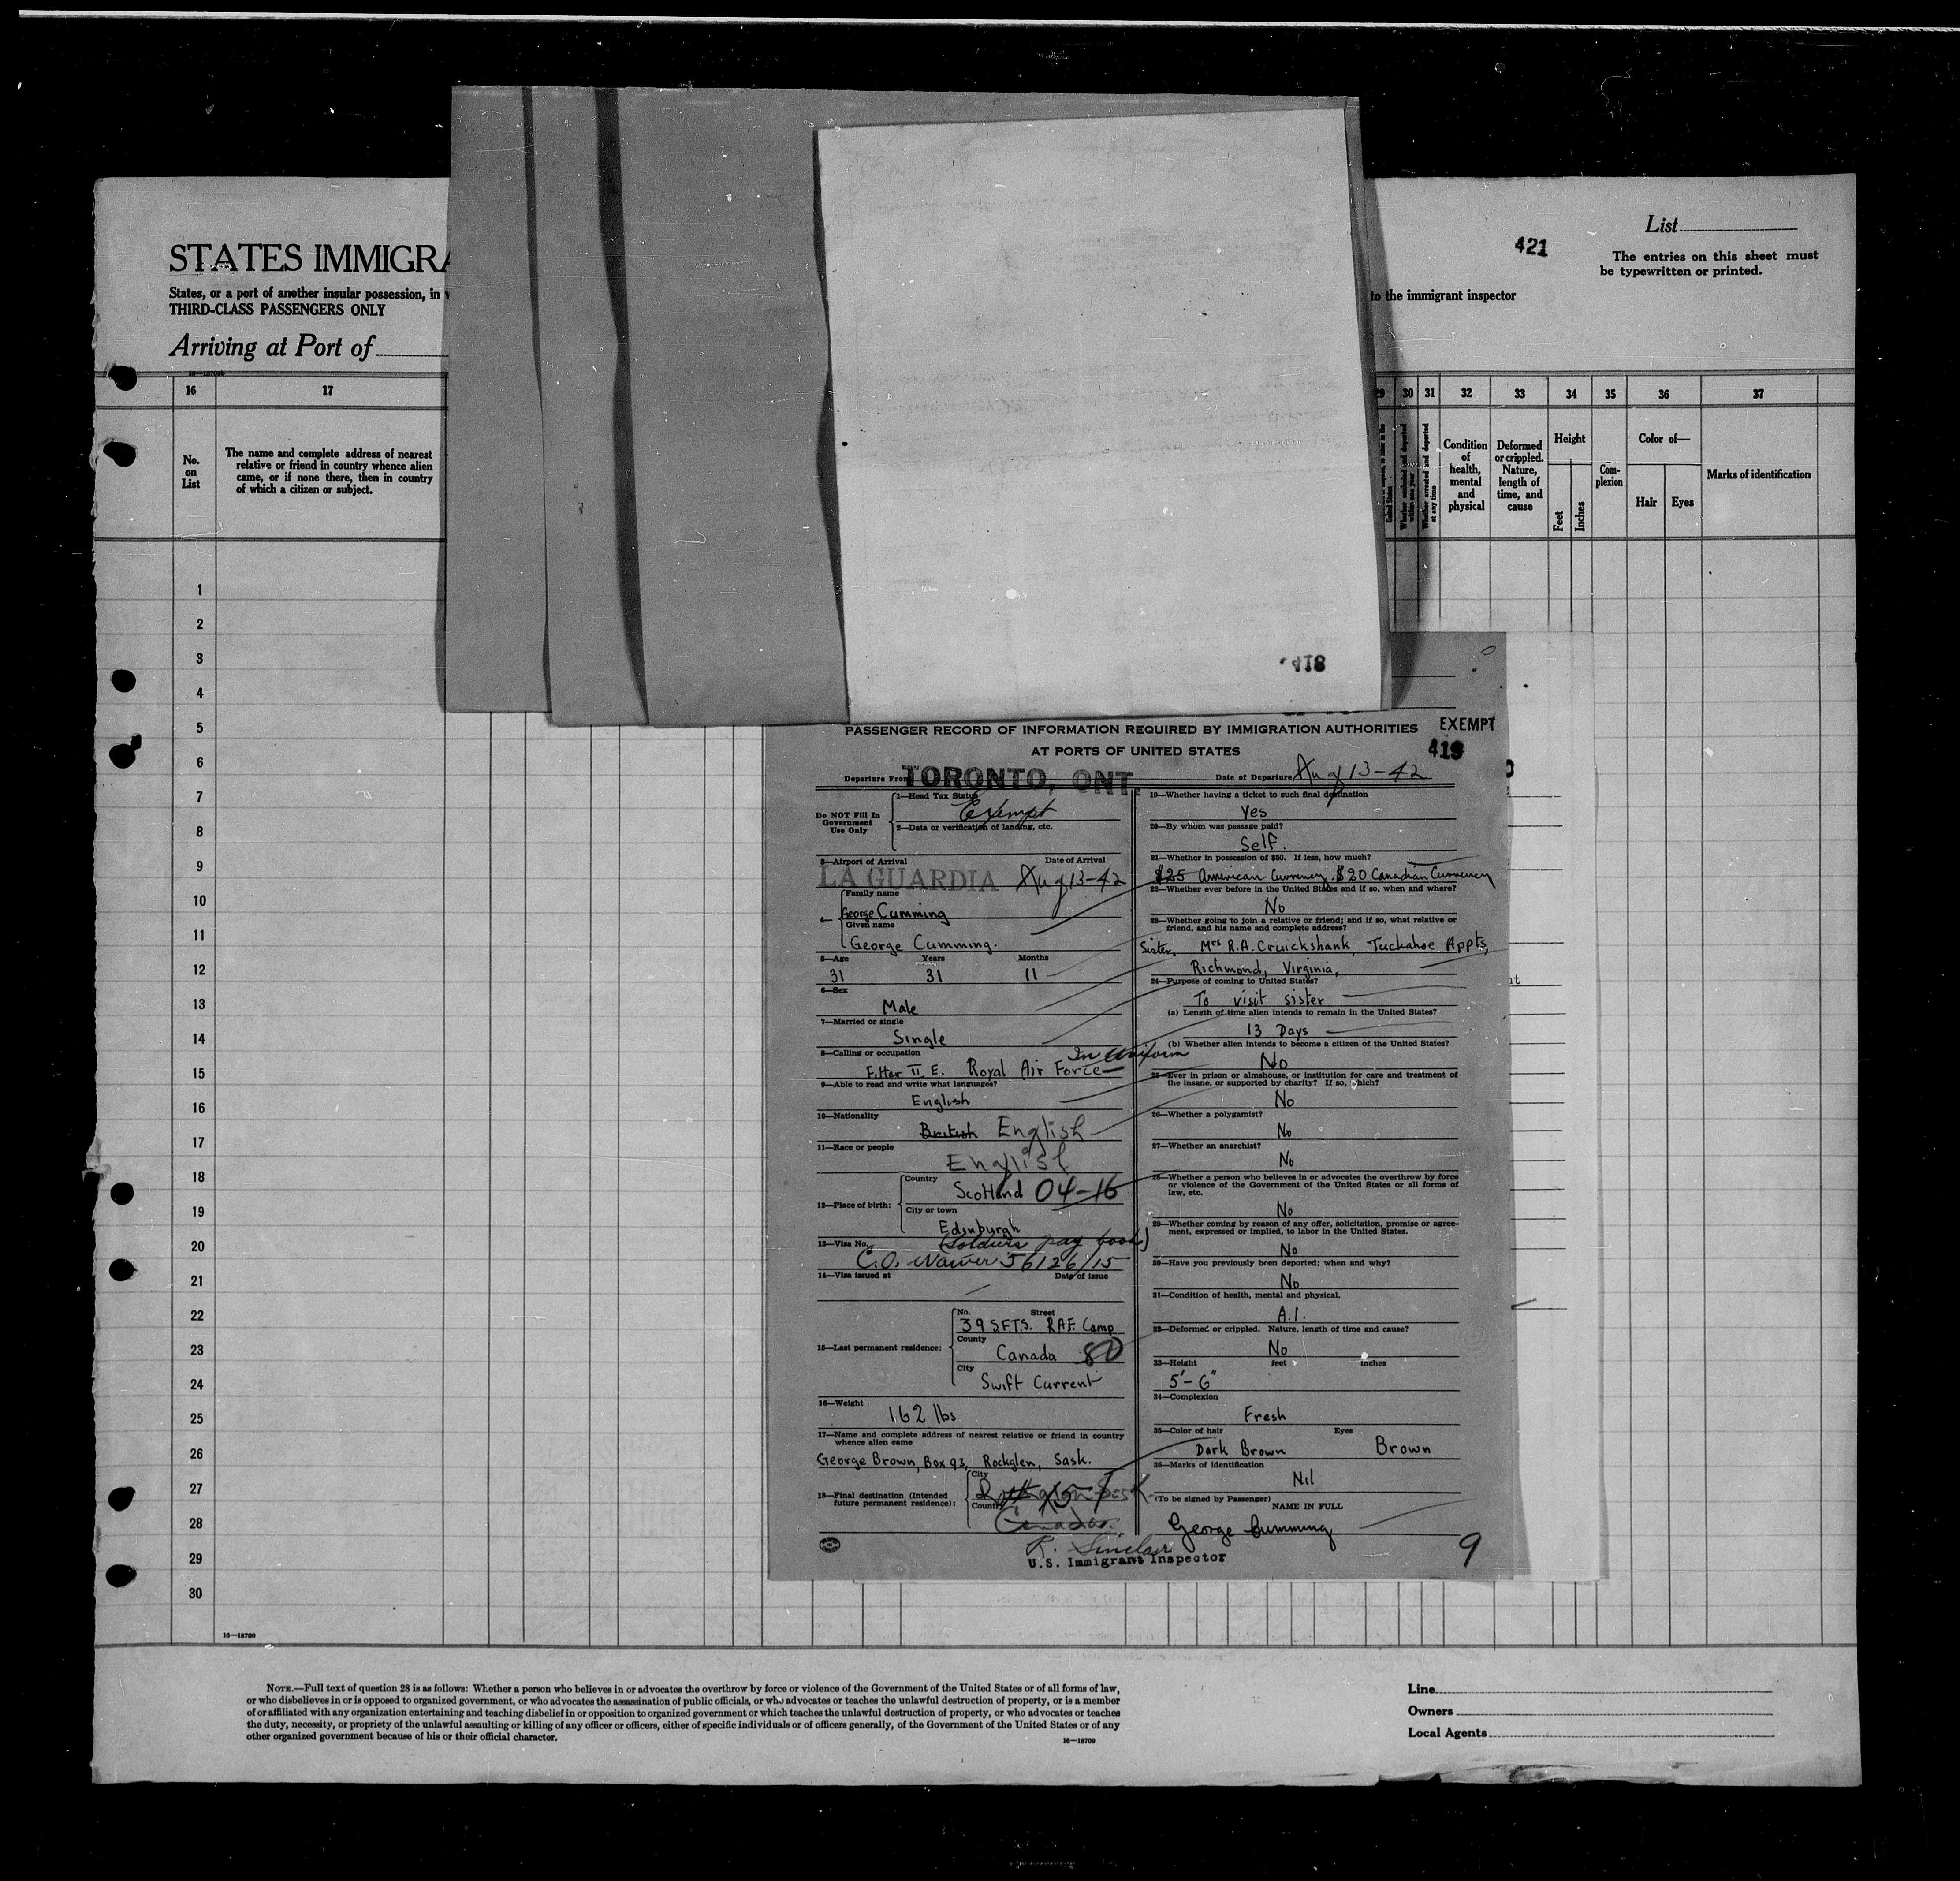 List
421
The entries on this sheet must
be typewritten or printed.
STATES IMMIGRA
States, or a port of another insular possession, in
to the immigrant inspector
THIRD-CLASS PASSENGERS ONLY
Arriving at Port of
16 17 29 30 31 32 33 34 35 36 37
No.
on
List
The name and complete address of nearest
relative or friend in country whence alien
came, or if none there, then in country
of which a citizen or subject.
Whether excluded and deported
within one year
Whether arrested and deported
at any time
Condition
of
health,
mental
and
physical
Deformed
or crippled.
Nature,
length of
time, and
cause
Height
Feet
Inches
Com-
plexion
Color of—
Hair Eyes
Marks of identification
1
2
3
4
5
6
7
8
9
10
11
12
13
14
15
16
17
18
19
20
21
22
23
24
25
26
27
28
29
30
16—18709
418
PASSENGER RECORD OF INFORMATION REQUIRED BY IMMIGRATION AUTHORITIES
EXEMPT
AT PORTS OF UNITED STATES
419
Departure From TORONTO, ONT.
Date of Departure Aug 13-42
Do NOT Fill In
Government
Use Only
1—Head Tax Status
Exempt
2—Data or verification of landing, etc.
3—Airport of Arrival Date of Arrival
LA GUARDIA Aug 13-42
4—
Family name
George Cumming
Given name
George Cumming.
5—Age Years Months
31 31 11
6—Sex
Male
7—Married or single
Single
8—Calling or occupation
In Uniform
Fitter II. E. Royal Air Force
9—Able to read and write what languages?
English
10—Nationality
British English
11—Race or people
English
12—Place of birth:
Country
Scotland 04-16
City or town
Edinburgh
13—Visa No.
(Soldiers pay book)
C.O. Waiver 56126/15
14—Visa issued at Date of issue
15—Last permanent residence:
No. Street
39 S.F.T.S. RAF. Camp
County
Canada 80
City
Swift Current
16—Weight
162 lbs
17—Name and complete address of nearest relative or friend in country
whence alien came
George Brown, Box 93, Rockglen, Sask.
18—Final destination (Intended
future permanent residence):
City
Country
Canada
19—Whether having a ticket to such final destination
Yes
20—By whom was passage paid?
Self.
21—Whether in possession of $50. If less, how much?
$25 American Currency. $20 Canadian Currency
22—Whether ever before in the United States and if so, when and where?
No
23—Whether going to join a relative or friend; and if so, what relative or
friend, and his name and complete address?
Sister, Mrs R.A. Cruickshank, Tuckahoe Appts,
Richmond, Virginia,
24—Purpose of coming to United States?
To visit sister
(a) Length of time alien intends to remain in the United States?
13 Days
(b) Whether alien intends to become a citizen of the United States?
No
25—Ever in prison or almshouse, or institution for care and treatment of
the insane, or supported by charity? If so, which?
No
26—Whether a polygamist?
No
27—Whether an anarchist?
No
28—Whether a person who believes in or advocates the overthrow by force
or violence of the Government of the United States or all forms of
law, etc.
No
29—Whether coming by reason of any offer, solicitation, promise or agree-
ment, expressed or implied, to labor in the United States.
No
30—Have you previously been deported; when and why?
No
31—Condition of health, mental and physical.
A.1.
32—Deformed or crippled. Nature, length of time and cause?
No
33—Height feet inches
5'-6"
34—Complexion
Fresh
35—Color of hair Eyes
Dark Brown Brown
36—Marks of identification
Nil
(To be signed by Passenger)
NAME IN FULL
George Cumming
R. Sinclair
U.S. Immigrant Inspector
9
NOTE.—Full text of question 28 is as follows: Whether a person who believes in or advocates the overthrow by force or violence of the Government of the United States or of all forms of law,
or who disbelieves in or is opposed to organized government, or who advocates the assassination of public officials, or who advocates or teaches the unlawful destruction of property, or is a member
of or affiliated with any organization entertaining and teaching disbelief in or opposition to organized government or which teaches the unlawful destruction of property, or who advocates or teaches
the duty, necessity, or propriety of the unlawful assaulting or killing of any officer or officers, either of specific individuals or of officers generally, of the Government of the United States or of any
other organized government because of his or their official character.
16—18709
Line
Owners
Local Agents